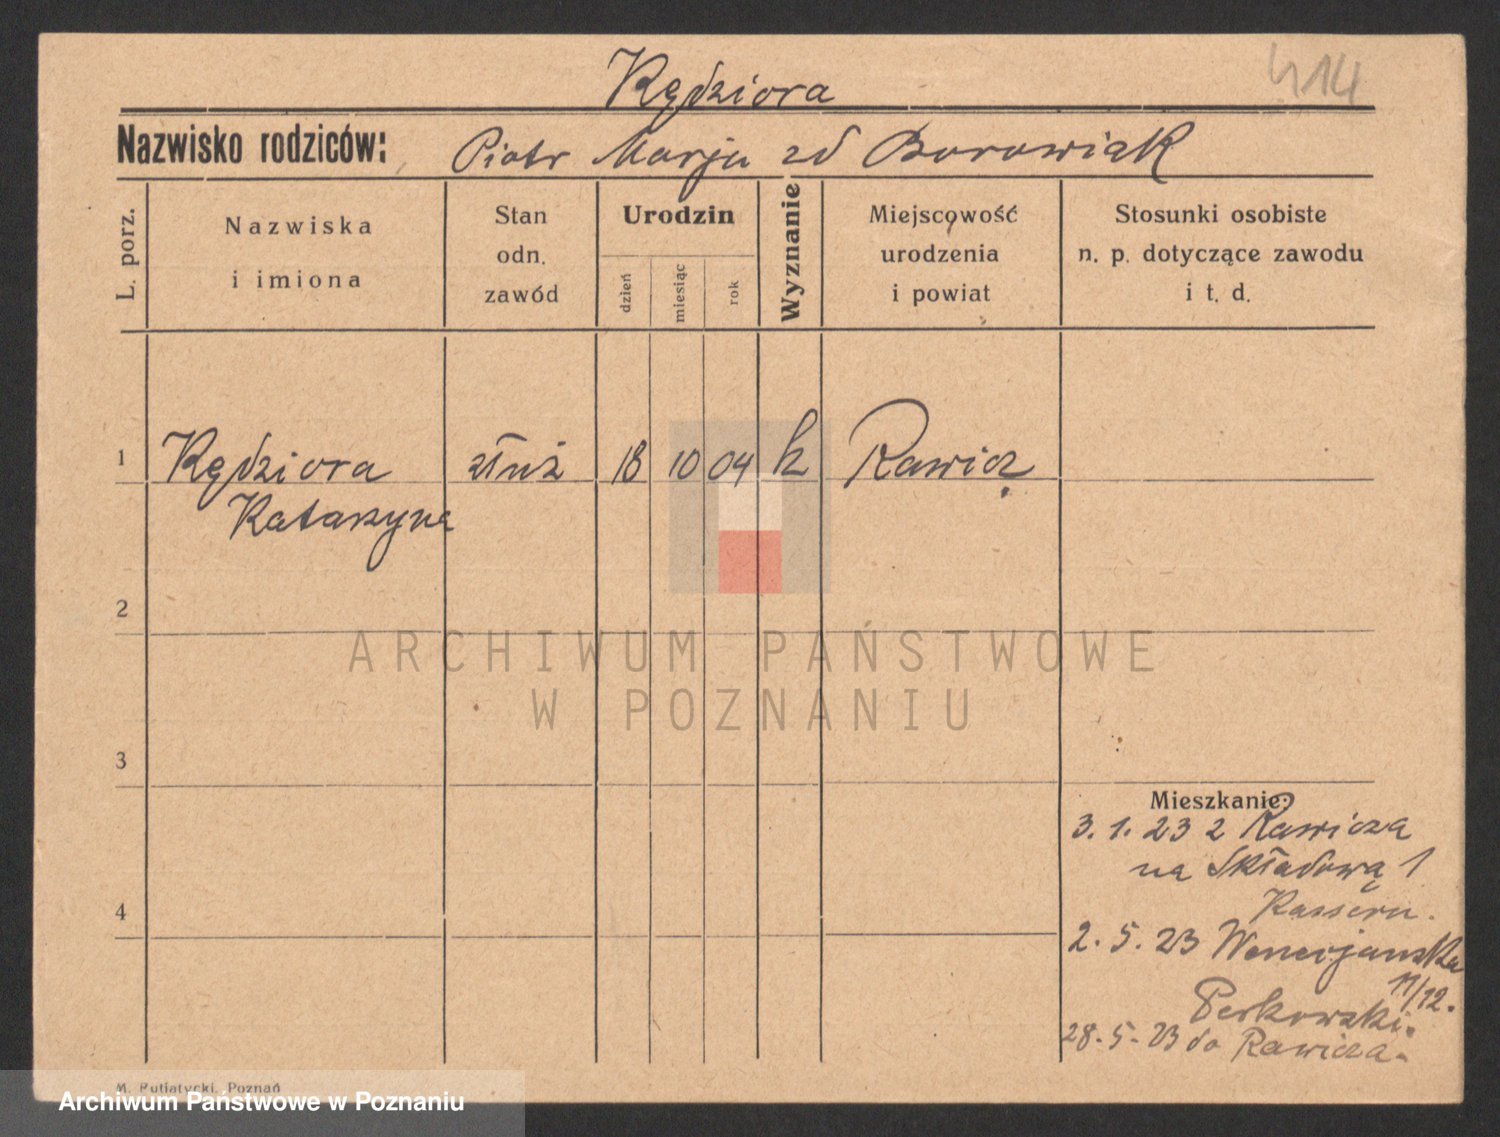 Kędziora
414
Nazwisko rodziców: Piotr Marja zd Borowiak
L. porz.
Nazwiska i imiona
Stan odn. zawód
Urodzin
dzień
miesiąc
rok
Wyznanie
Miejscowość urodzenia i powiat
Stosunki osobiste n. p. dotyczące zawodu i t. d.
1 Kędziora służ 18 10 04 k Rawicz
Katarzyna
2
ARCHIWUM PAŃSTWOWE
W POZNANIU
3
Mieszkanie:
3. 1. 23 z Rawicza
na Składową 1
4
2. 5. 23 Wenecjanska
11/12.
28-5-23 do Rawicza.
M. Putiatycki, Poznań
Archiwum Państwowe w Poznaniu